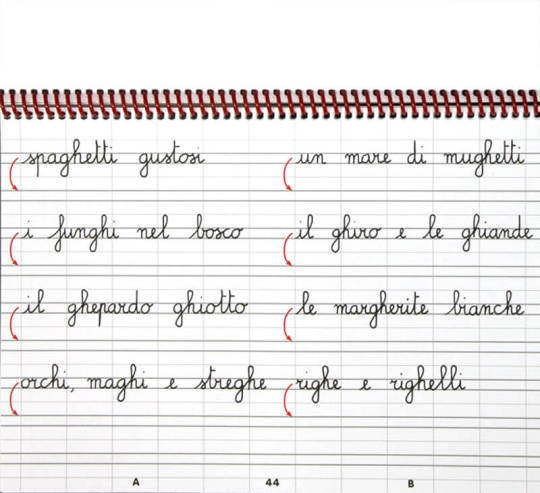 spaghetti gustosi
i funghi nel bosco
il ghepardo ghiotto
orchi, maghi e streghe
un mare di mughetti
il ghiro e le ghiande
le margherite bianche
righe e righelli
A 44 B